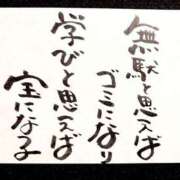 無駄と思えば
ゴミになり
学びと思えば
宝になる